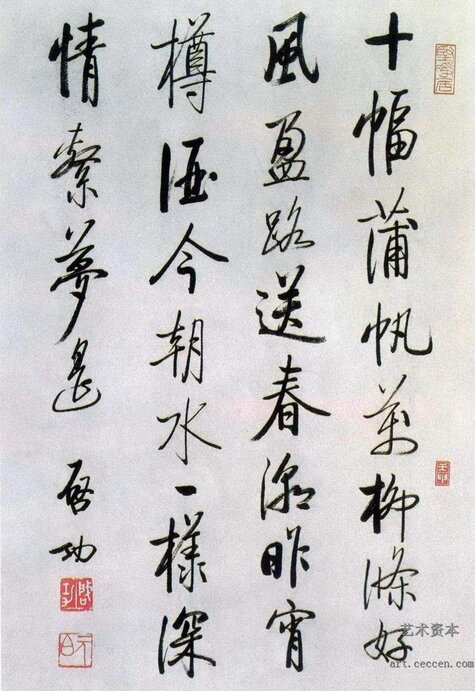 十幅蒲帆萬柳條好
風盈路送春潮昨宵
樽酒今朝水一樣深
情繫夢遙 啓功
元白
艺术资本
art.ceccen.com